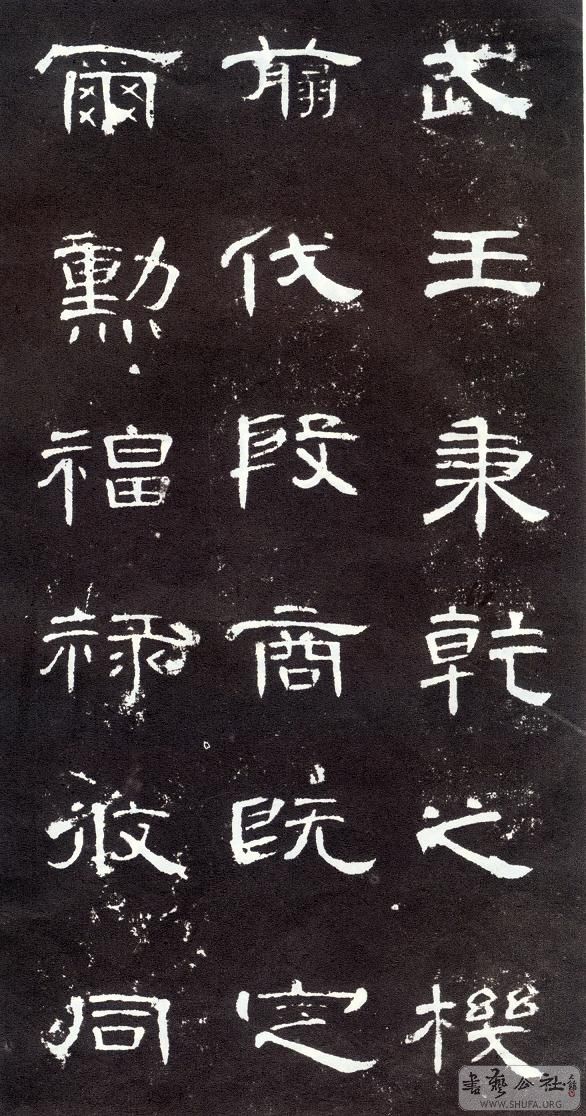 武王秉乾之機
翦伐殷商既定
爾勳福祿攸同
書藝公社
WWW.SHUFA.ORG